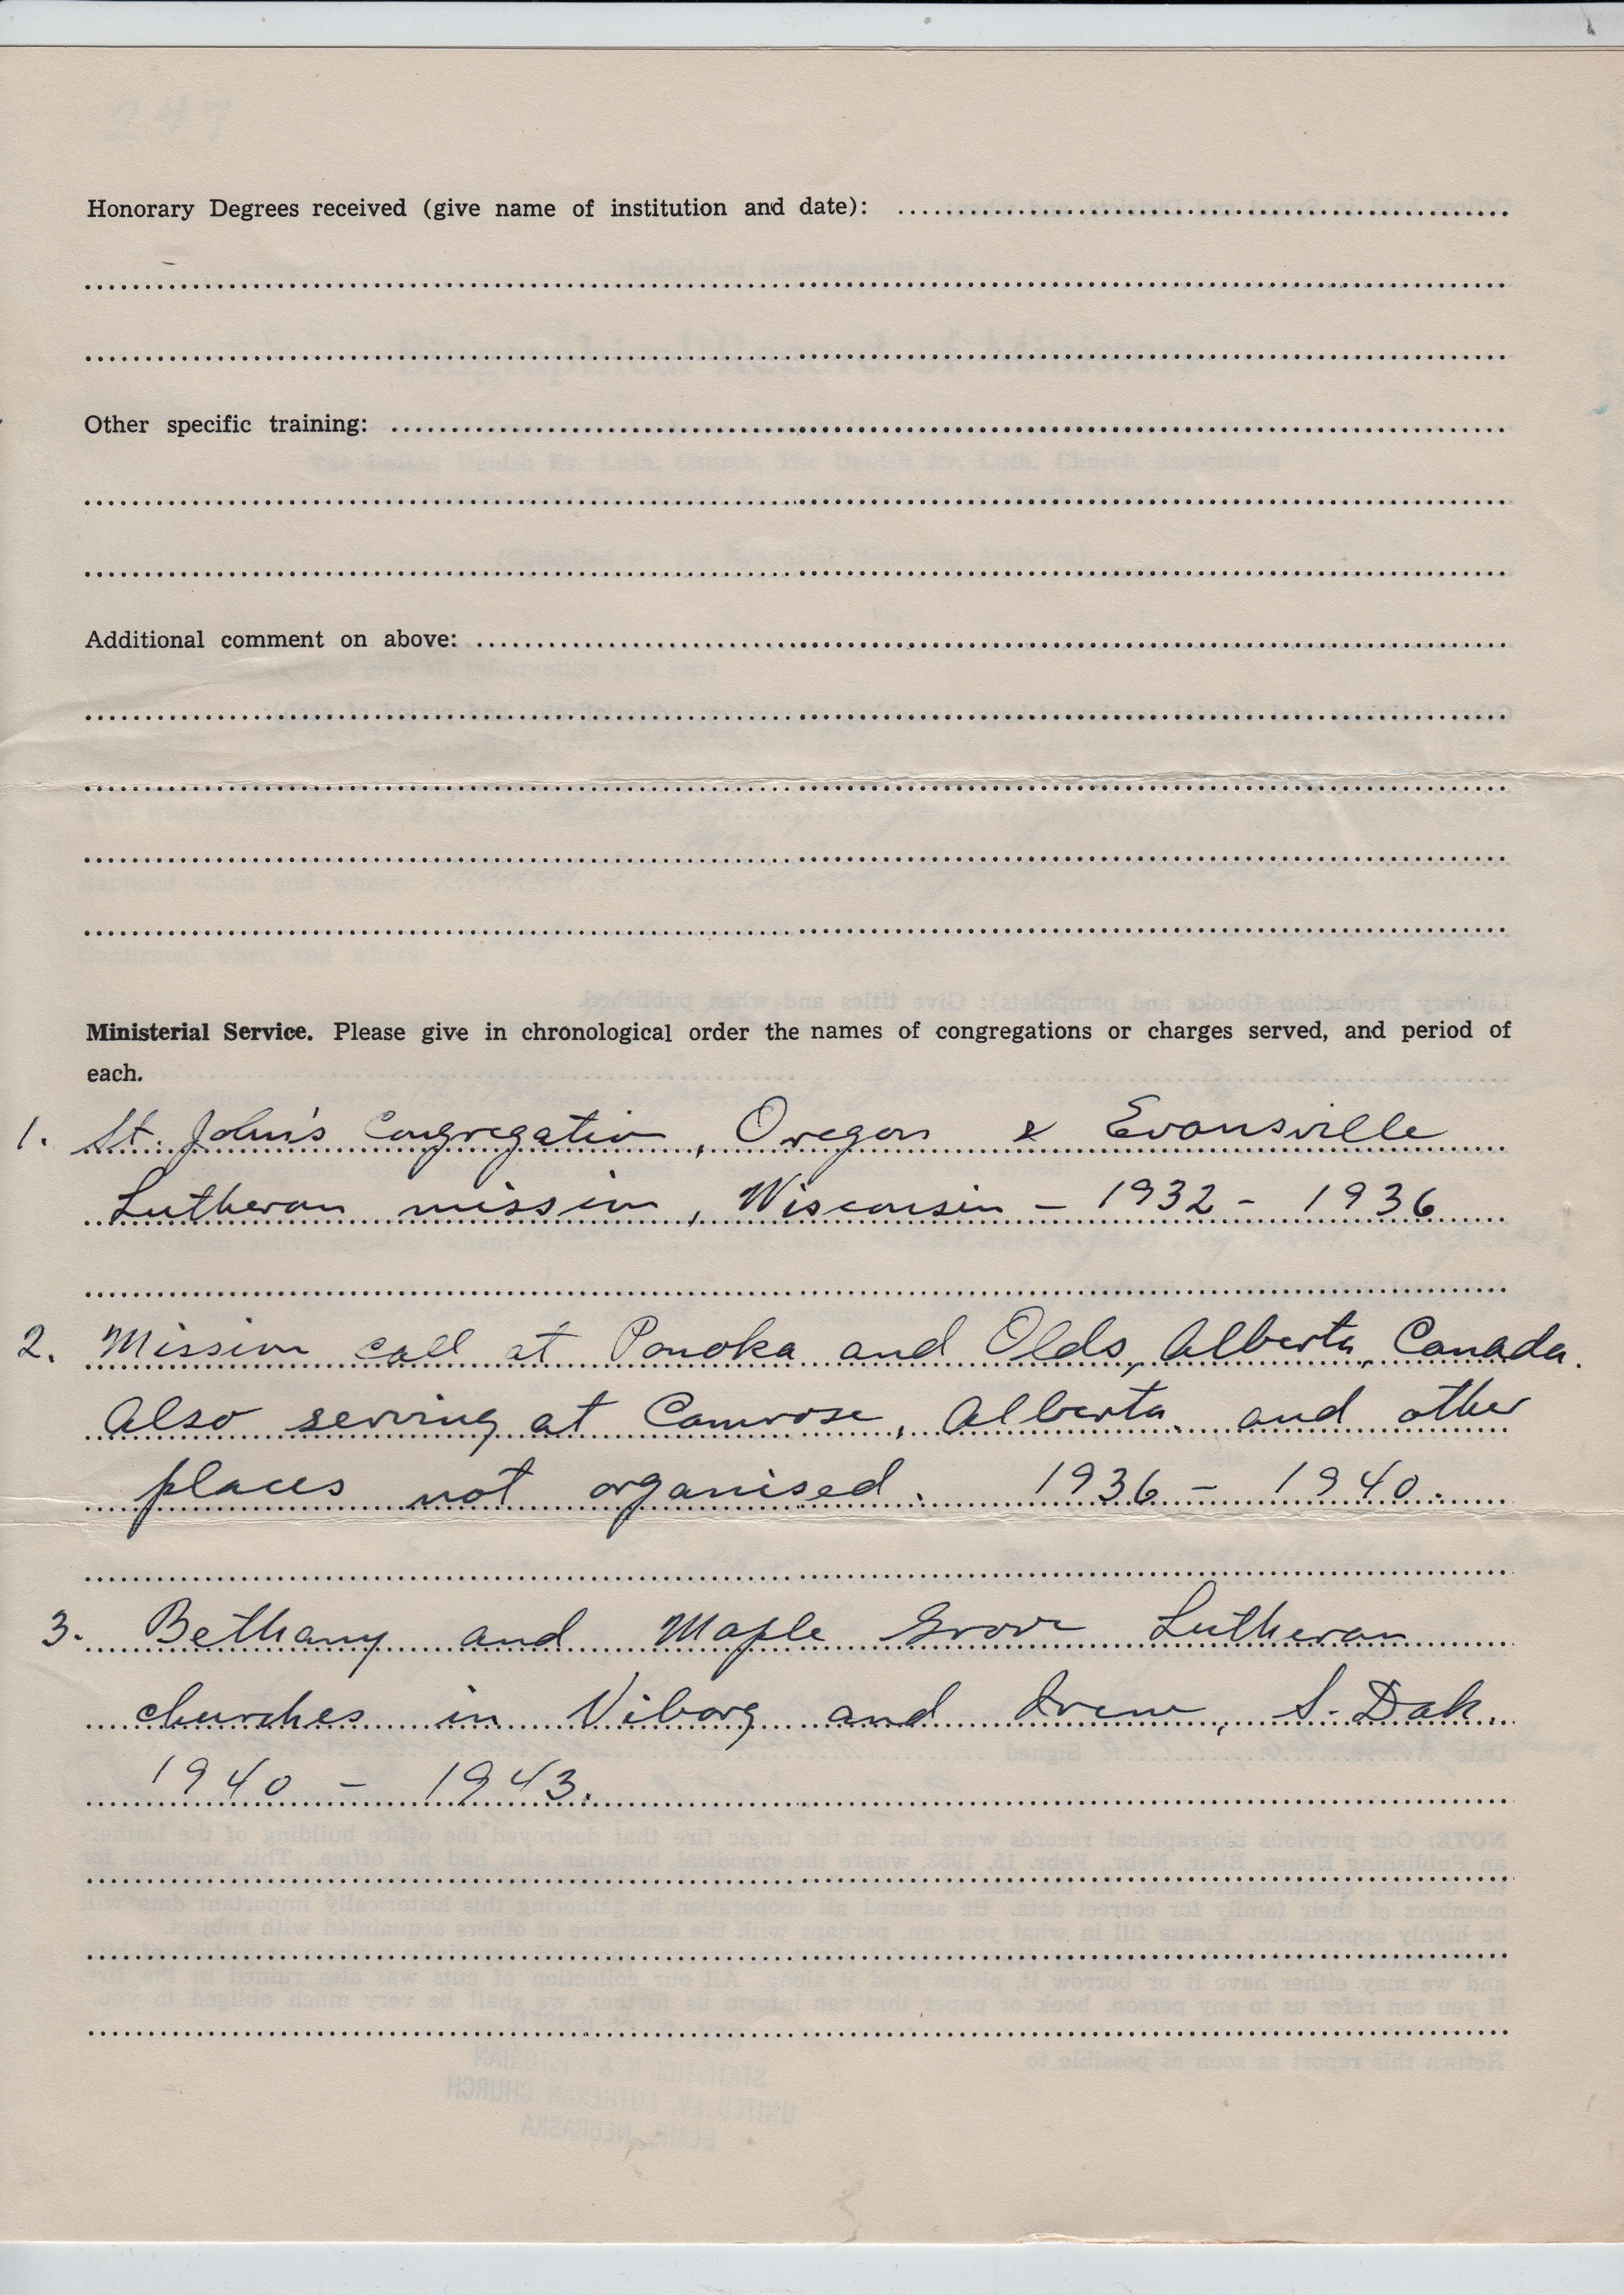 Honorary Degrees received (give name of institution and date):
Other specific training:
Additional comment on above:
Ministerial Service. Please give in chronological order the names of congregations or charges served, and period of
each.
1. St. John's Congregation, Oregon & Evansville
Lutheran mission, Wisconsin - 1932 - 1936
2. Mission call at Ponoka and Olds, Alberta, Canada.
Also serving at Camrose, Alberta, and other
places not organised. 1936 - 1940.
3. Bethany and Maple Grove Lutheran
churches in Viborg and Irene, S. Dak.
1940 - 1943.